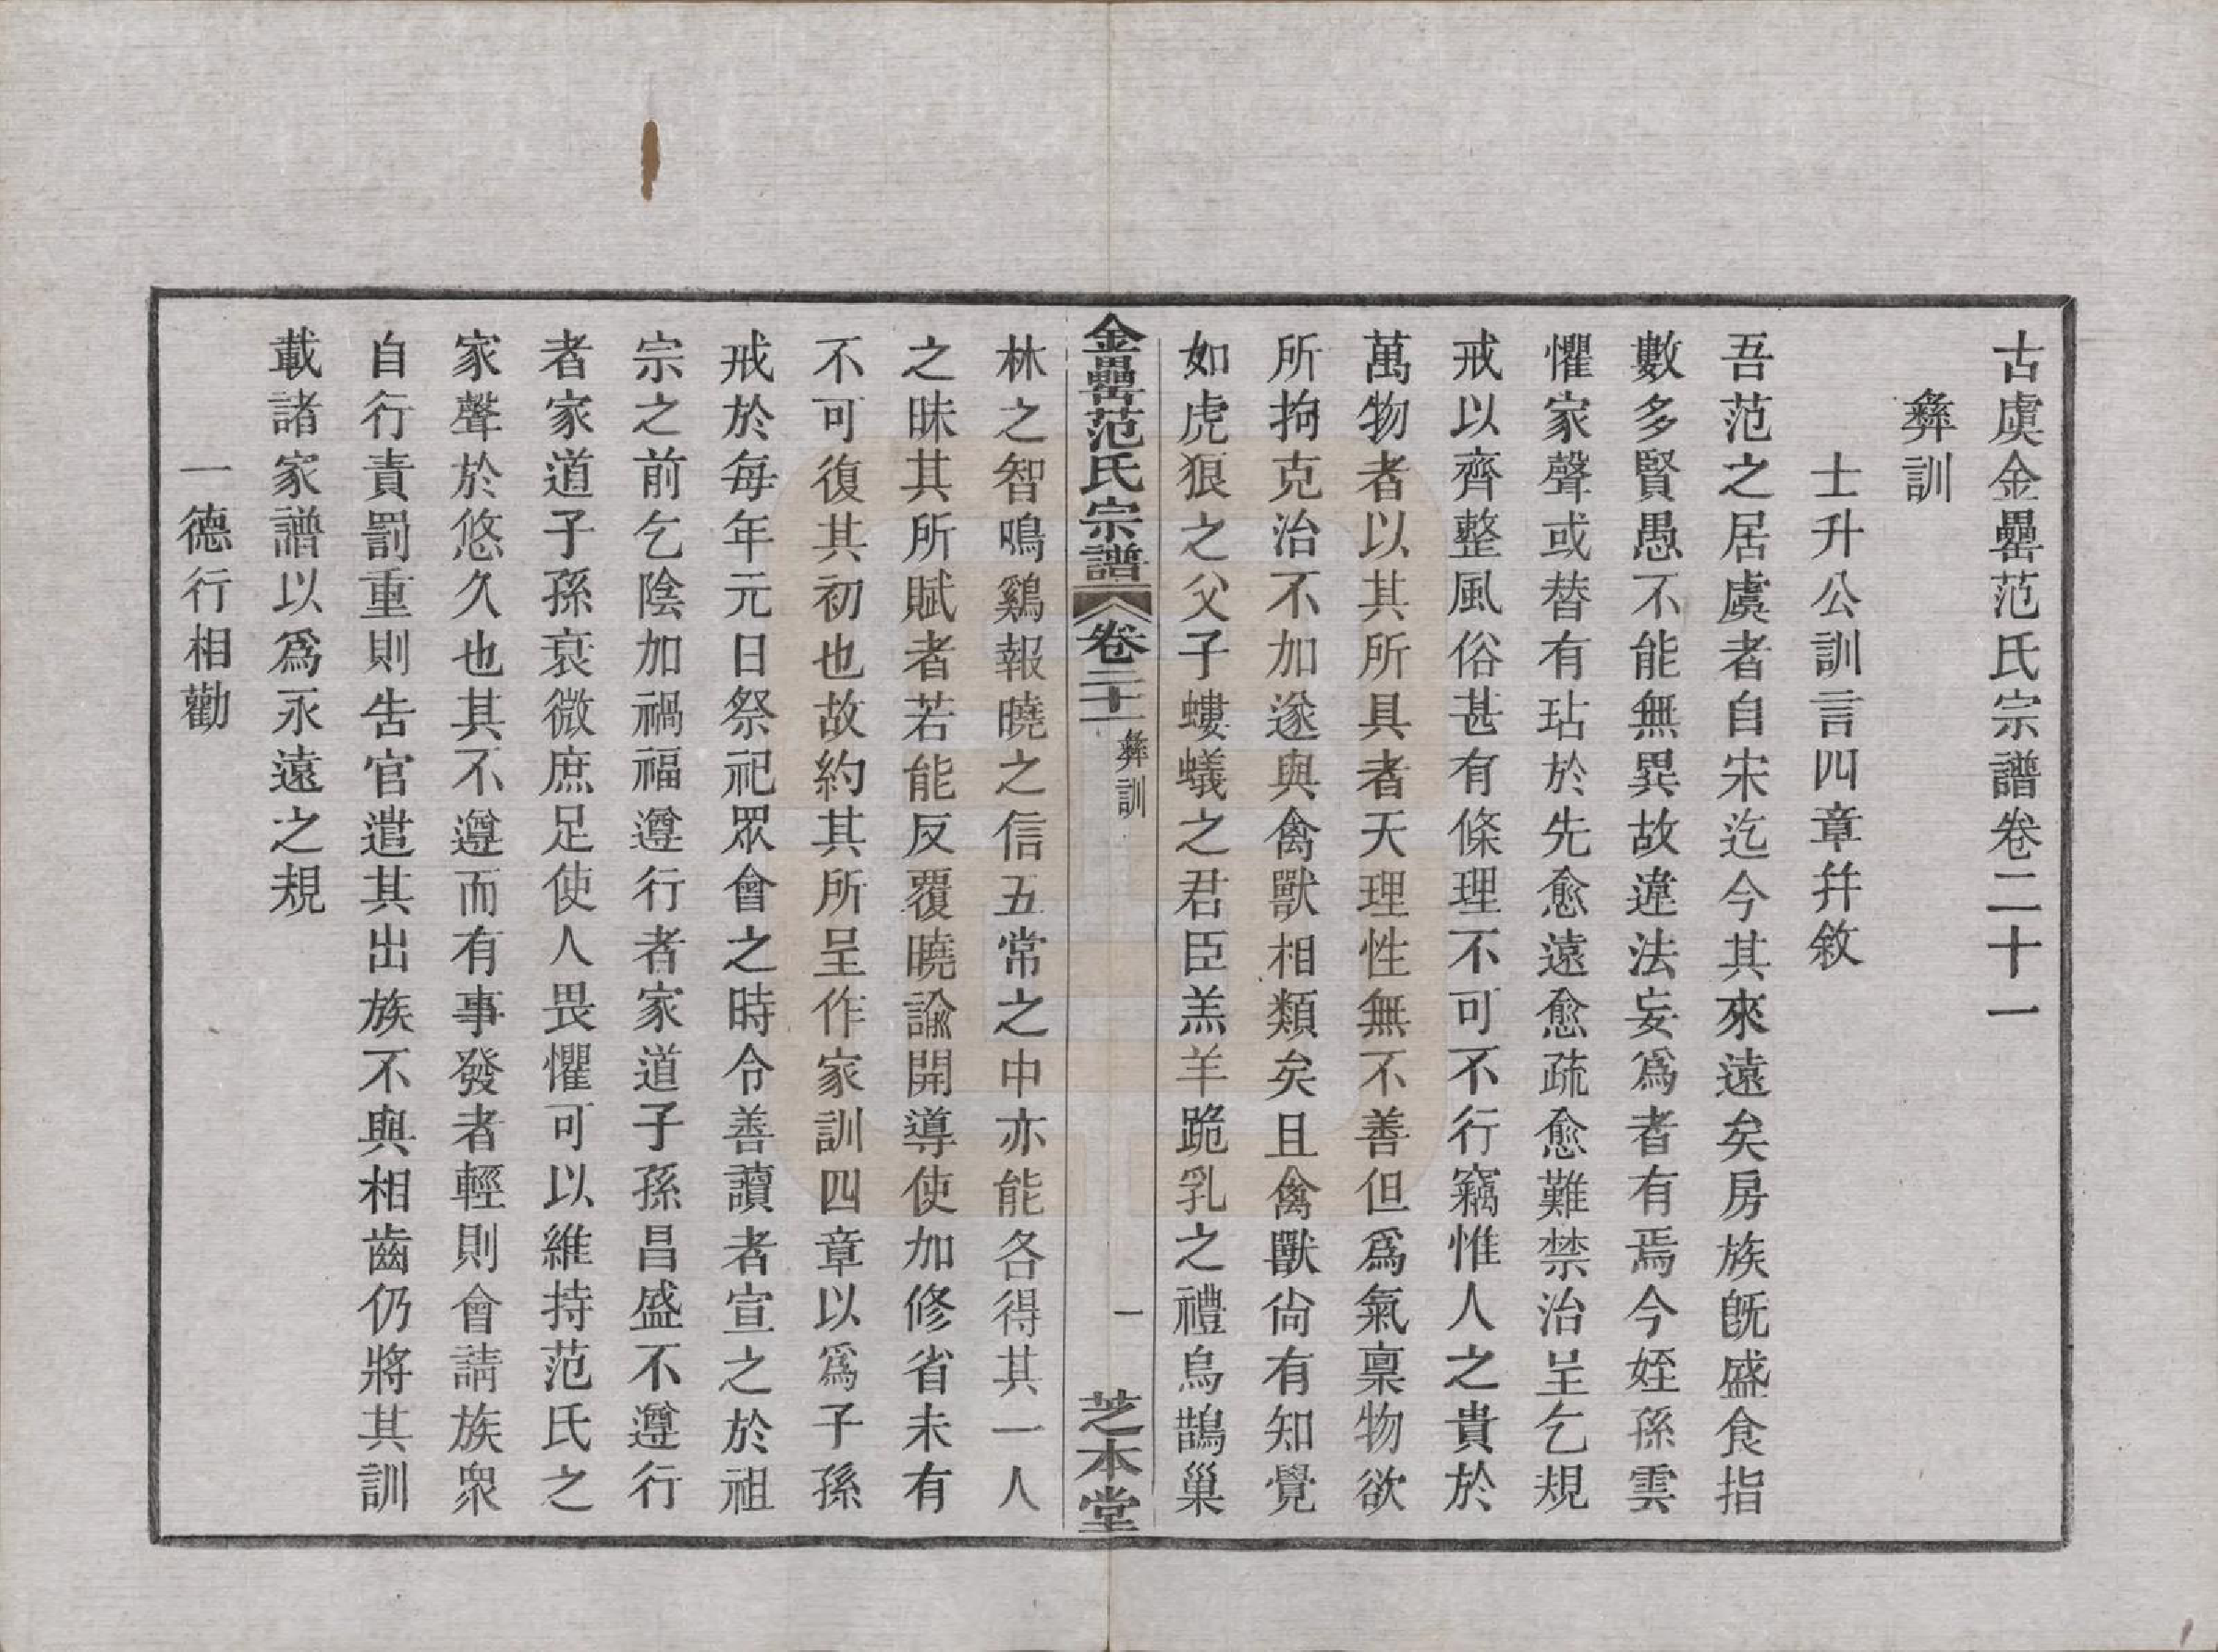 古虞金罍范氏宗譜卷二十一
彝訓
士升公訓言四章幷敘
吾范之居虞者自宋迄今其來遠矣房族旣盛食指
數多賢愚不能無異故違法妄爲者有焉今姪孫雲
懼家聲或替有玷於先愈遠愈疏愈難禁治呈乞規
戒以齊整風俗甚有條理不可不行竊惟人之貴於
萬物者以其所具者天理性無不善但爲氣稟物欲
所拘克治不加遂與禽獸相類矣且禽獸尙有知覺
如虎狼之父子螻蟻之君臣羔羊跪乳之禮烏鵲巢
金罍范氏宗譜 卷二十一 彝訓 一 芝本堂
林之智鳴鷄報曉之信五常之中亦能各得其一人
之昧其所賦者若能反覆曉諭開導使加修省未有
不可復其初也故約其所呈作家訓四章以爲子孫
戒於每年元日祭祀眾會之時令善讀者宣之於祖
宗之前乞陰加禍福遵行者家道子孫昌盛不遵行
者家道子孫衰微庶足使人畏懼可以維持范氏之
家聲於悠久也其不遵而有事發者輕則會請族眾
自行責罰重則告官遣其出族不與相齒仍將其訓
載諸家譜以爲永遠之規
一德行相勸